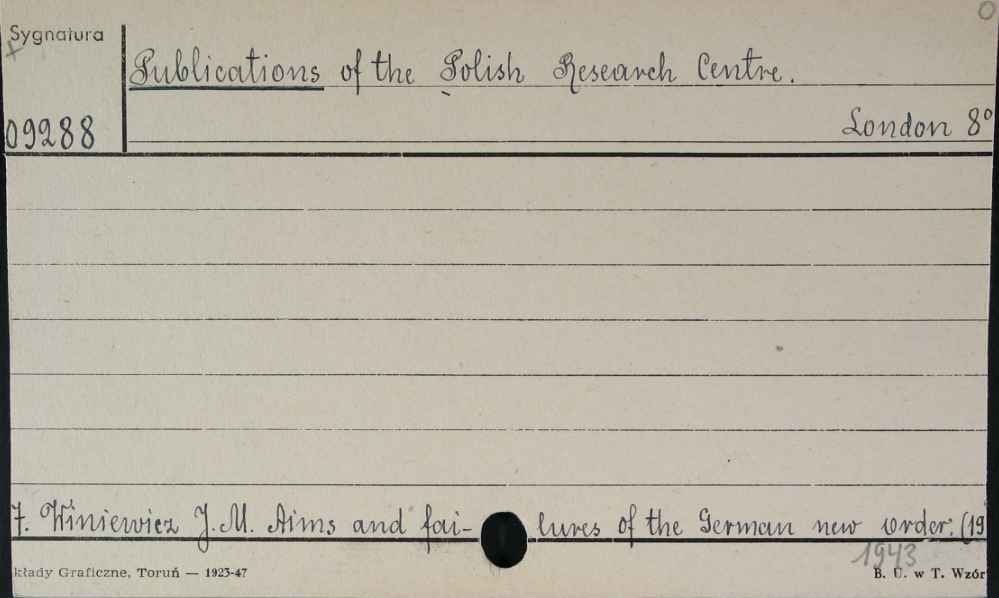 Sygnatura
Publications of the Polish Research Centre.
09288
London 8°
7. Winiewicz J.M. Aims and fai- lures of the German new order. (19
1943
kłady Graficzne, Toruń — 1923-47
B. U. w T. Wzór